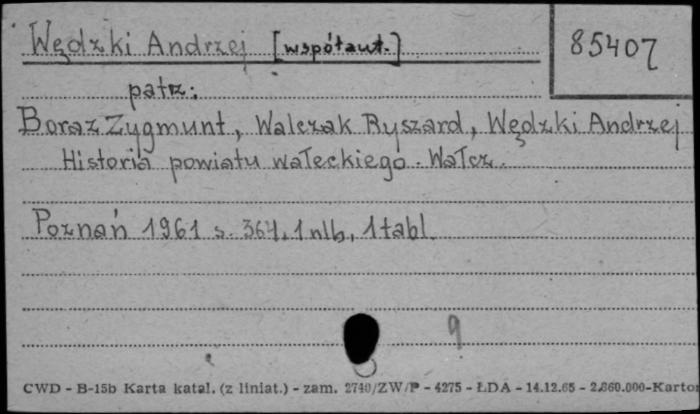 Wędzki Andrzej [współaut.]
85407
patrz:
Boraz Zygmunt, Walczak Ryszard, Wędzki Andrzej
Historia powiatu wałeckiego. Wałcz.
Poznań 1961 s. 364, 1 nlb, 1 tabl.
9
CWD - B-15b Karta katal. (z liniat.) - zam. 2740/ZW/P - 4275 - ŁDA - 14.12.65 - 2.860.000-Karto